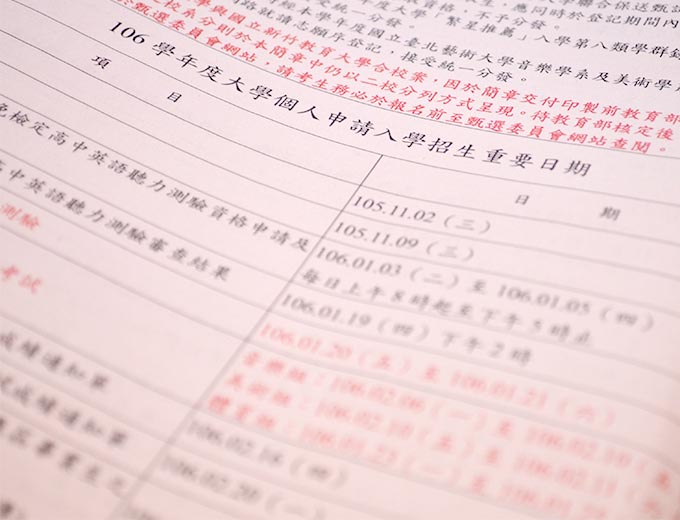 聯合保送甄試
生,應同時於登記期間內
資格,不予分發。
大學「繁星推薦」入學第八類學群錄
路就讀志願序登記,接受統一分發。
經本學年度國立臺北藝術大學音樂學系及美術學
學與國立新竹教育大學合校案,因於簡章交付印製前教育部
校系分則於本簡章中仍以二校分列方式呈現。待教育部核定後
會網站,請考生務必於報名前至甄選委員會網站查閱。
106 學年度大學個人申請入學招生重要日期
項 目
日 期
免檢定高中英語聽力測驗資格申請及
105.11.02(三)
中英語聽力測驗審查結果
105.11.09(三)
測驗
106.01.03(二)至 106.01.05(四)
每日上午 8 時起至下午 5 時止
106.01.19(四)下午 2 時
考試
106.01.20(五)至 106.01.21(六)
音樂組:106.02.06(一)至 106.02.10(五
美術組:106.02.10(五)至 106.02.11(六
體育組:106.01.23(一)至 106.01
成績通知單
106.02.16(四)
成績通知單
106.02.20(一)